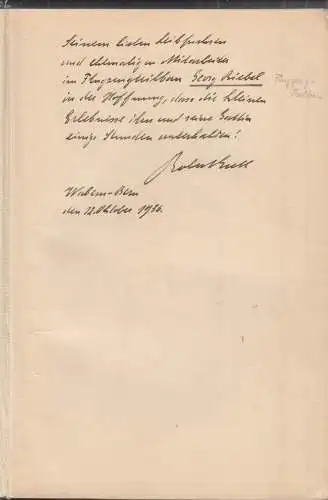 Seinem lieben Leibfuchsen
und ehemaligen Mitarbeiter
im Flugzeughüttbau Georg Riebel
in der Hoffnung, dass die kleinen
Erlebnisse ihn und seine Gattin
einige Stunden unterhalten!
Wabern-Bern
den 12. Oktober 1956.